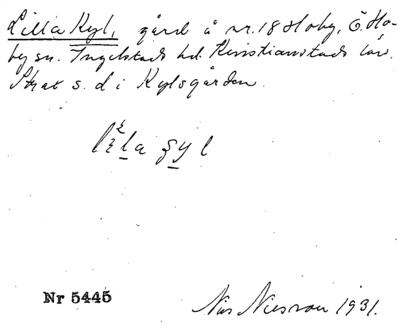 Lilla Kyl, gård å nr. 18 Hoby, Ö. Ho-
by sn. Ingelstads hd. Kristianstads län.
Strax s. d i Kylsgården.
la yl
Nr 5445
Nils Nilsson 1931.